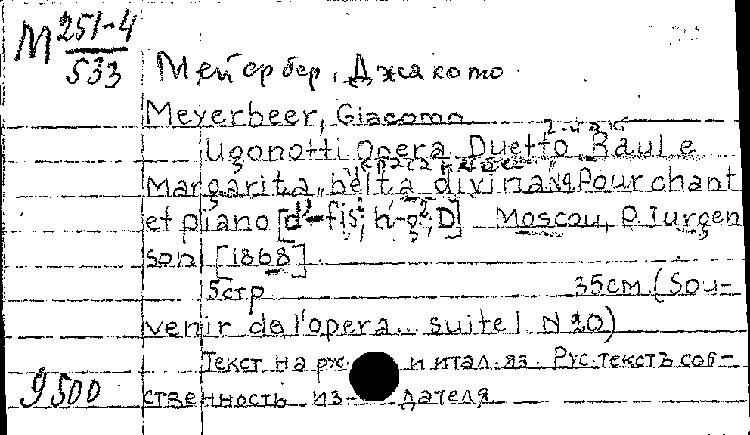 М 251-4
533
Мейербер, Джакомо.
Meyerbeer, Giacomo
2-й акт
Ugonotti opera Duetto Raul e
"Краса
Margarita "belta divina" Pour chant
et piano [d¹-fis², h-g², D] Moscou, P. Jurgen
son [1868]
5стр 35см (Sou-
venir de l'opera.. suite I N 20)
Текст на рус. и итал. яз. Рус. текстъ соб-
9500 ственность из-дателя